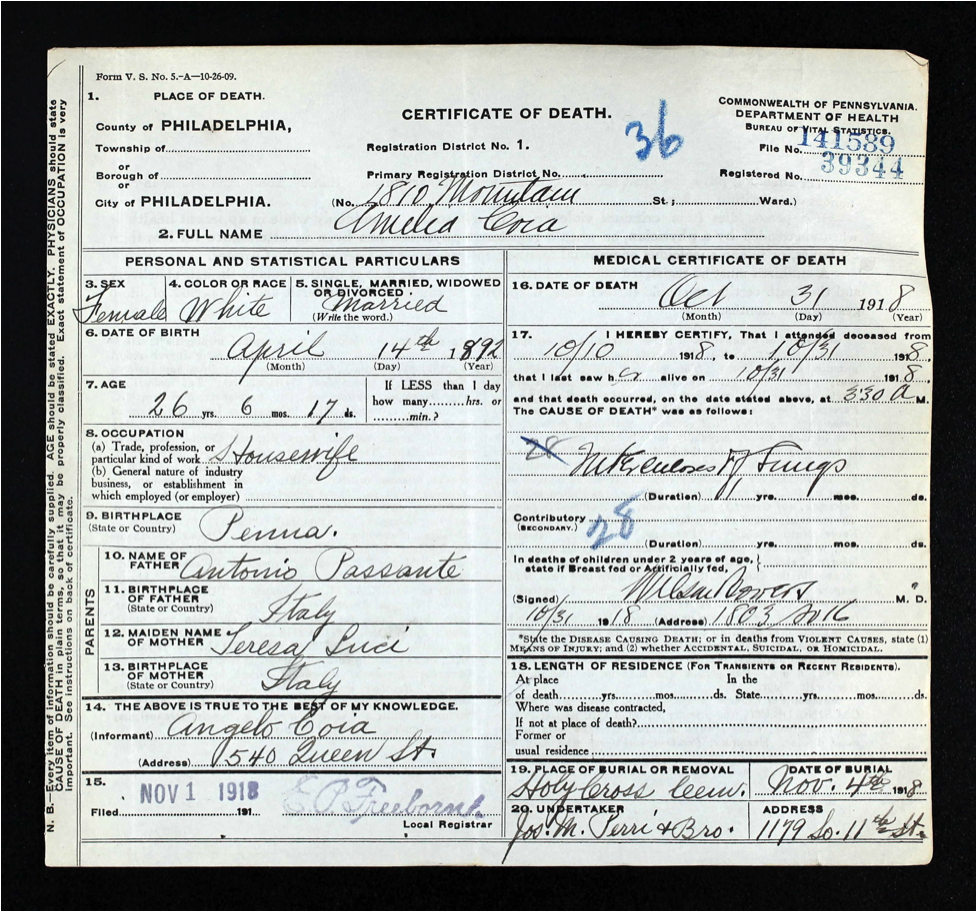 Form V. S. No. 5.-A-10-26-09.
1. PLACE OF DEATH.
County of PHILADELPHIA,
Township of
or
Borough of
or
City of PHILADELPHIA.
CERTIFICATE OF DEATH.
Registration District No. 1.
36
Primary Registration District No.
(No. 1810 Mountain St; Ward.)
COMMONWEALTH OF PENNSYLVANIA.
DEPARTMENT OF HEALTH
BUREAU OF VITAL STATISTICS.
File No. 141589
Registered No. 39344
2. FULL NAME Amelia Coia
PERSONAL AND STATISTICAL PARTICULARS
3. SEX
Female
4. COLOR OR RACE
White
5. SINGLE, MARRIED, WIDOWED
OR DIVORCED.
Married
(Write the word.)
6. DATE OF BIRTH
April 14th 1892
(Month) (Day) (Year)
7. AGE
26 yrs. 6 mos. 17 ds.
If LESS than 1 day
how many hrs. or
min.?
8. OCCUPATION
(a) Trade, profession, or
particular kind of work Housewife
(b) General nature of industry
business, or establishment in
which employed (or employer)
9. BIRTHPLACE
(State or Country) Penna.
PARENTS
10. NAME OF
FATHER Antonio Passante
11. BIRTHPLACE
OF FATHER
(State or Country) Italy
12. MAIDEN NAME
OF MOTHER Teresa Luci
13. BIRTHPLACE
OF MOTHER
(State or Country) Italy
14. THE ABOVE IS TRUE TO THE BEST OF MY KNOWLEDGE.
(Informant) Angelo Coia
(Address) 1540 Queen St.
15.
Filed NOV 1 1918 191
E. P. Freeborne.
Local Registrar
MEDICAL CERTIFICATE OF DEATH
16. DATE OF DEATH
Oct 31 1918
(Month) (Day) (Year)
17. I HEREBY CERTIFY, That I attended deceased from
10/10 1918, to 10/31 1918,
that I last saw her alive on 10/31 1918,
and that death occurred, on the date stated above, at 330 A M.
The CAUSE OF DEATH* was as follows:
28
Tuberculosis of Lungs
(Duration) yrs. mos. ds.
Contributory
(SECONDARY.)
28
(Duration) yrs. mos. ds.
In deaths of children under 2 years of age,
state if Breast fed or Artificially fed,
(Signed) M. D.
10/31 1918 (Address) 1803 So 16
*State the DISEASE CAUSING DEATH; or in deaths from VIOLENT CAUSES, state (1)
MEANS OF INJURY; and (2) whether ACCIDENTAL, SUICIDAL, OR HOMICIDAL.
18. LENGTH OF RESIDENCE (FOR TRANSIENTS OR RECENT RESIDENTS).
At place In the
of death yrs. mos. ds. State yrs. mos. ds.
Where was disease contracted,
If not at place of death?
Former or
usual residence
19. PLACE OF BURIAL OR REMOVAL
Holy Cross Cem.
DATE OF BURIAL
Nov. 4th 1918
20. UNDERTAKER
Jos. M. Perri & Bro.
ADDRESS
1179 So. 11th St.
N. B.—Every item of information should be carefully supplied. AGE should be stated EXACTLY. PHYSICIANS should state
CAUSE OF DEATH in plain terms, so that it may be properly classified. Exact statement of OCCUPATION is very
important. See instructions on back of certificate.